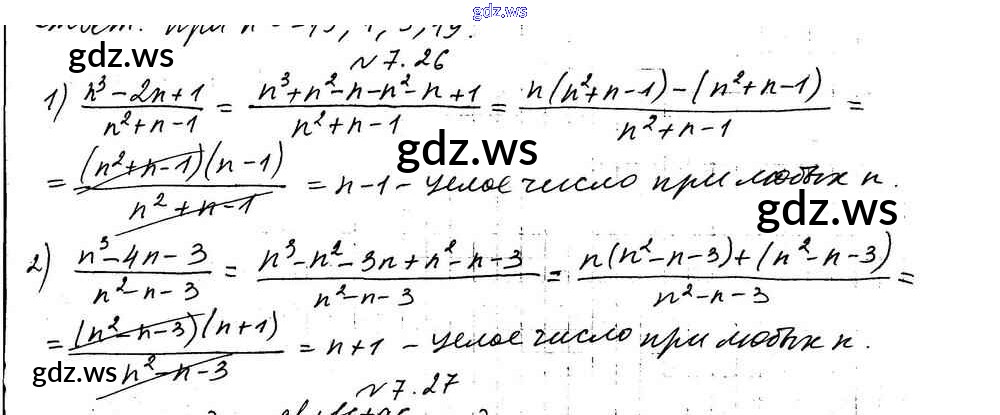 gdz.ws
Ответ: при n = -15, 1, 3, 19.
gdz.ws
№ 7.26
1) (n³ - 2n + 1)/(n² + n - 1) = (n³ + n² - n - n² - n + 1)/(n² + n - 1) = (n(n² + n - 1) - (n² + n - 1))/(n² + n - 1) =
gdz.ws
= ((n² + n - 1)(n - 1))/(n² + n - 1) = n - 1 - целое число при любых n.
gdz.ws
2) (n³ - 4n - 3)/(n² - n - 3) = (n³ - n² - 3n + n² - n - 3)/(n² - n - 3) = (n(n² - n - 3) + (n² - n - 3))/(n² - n - 3) =
= ((n² - n - 3)(n + 1))/(n² - n - 3) = n + 1 - целое число при любых n.
gdz.ws
№ 7.27